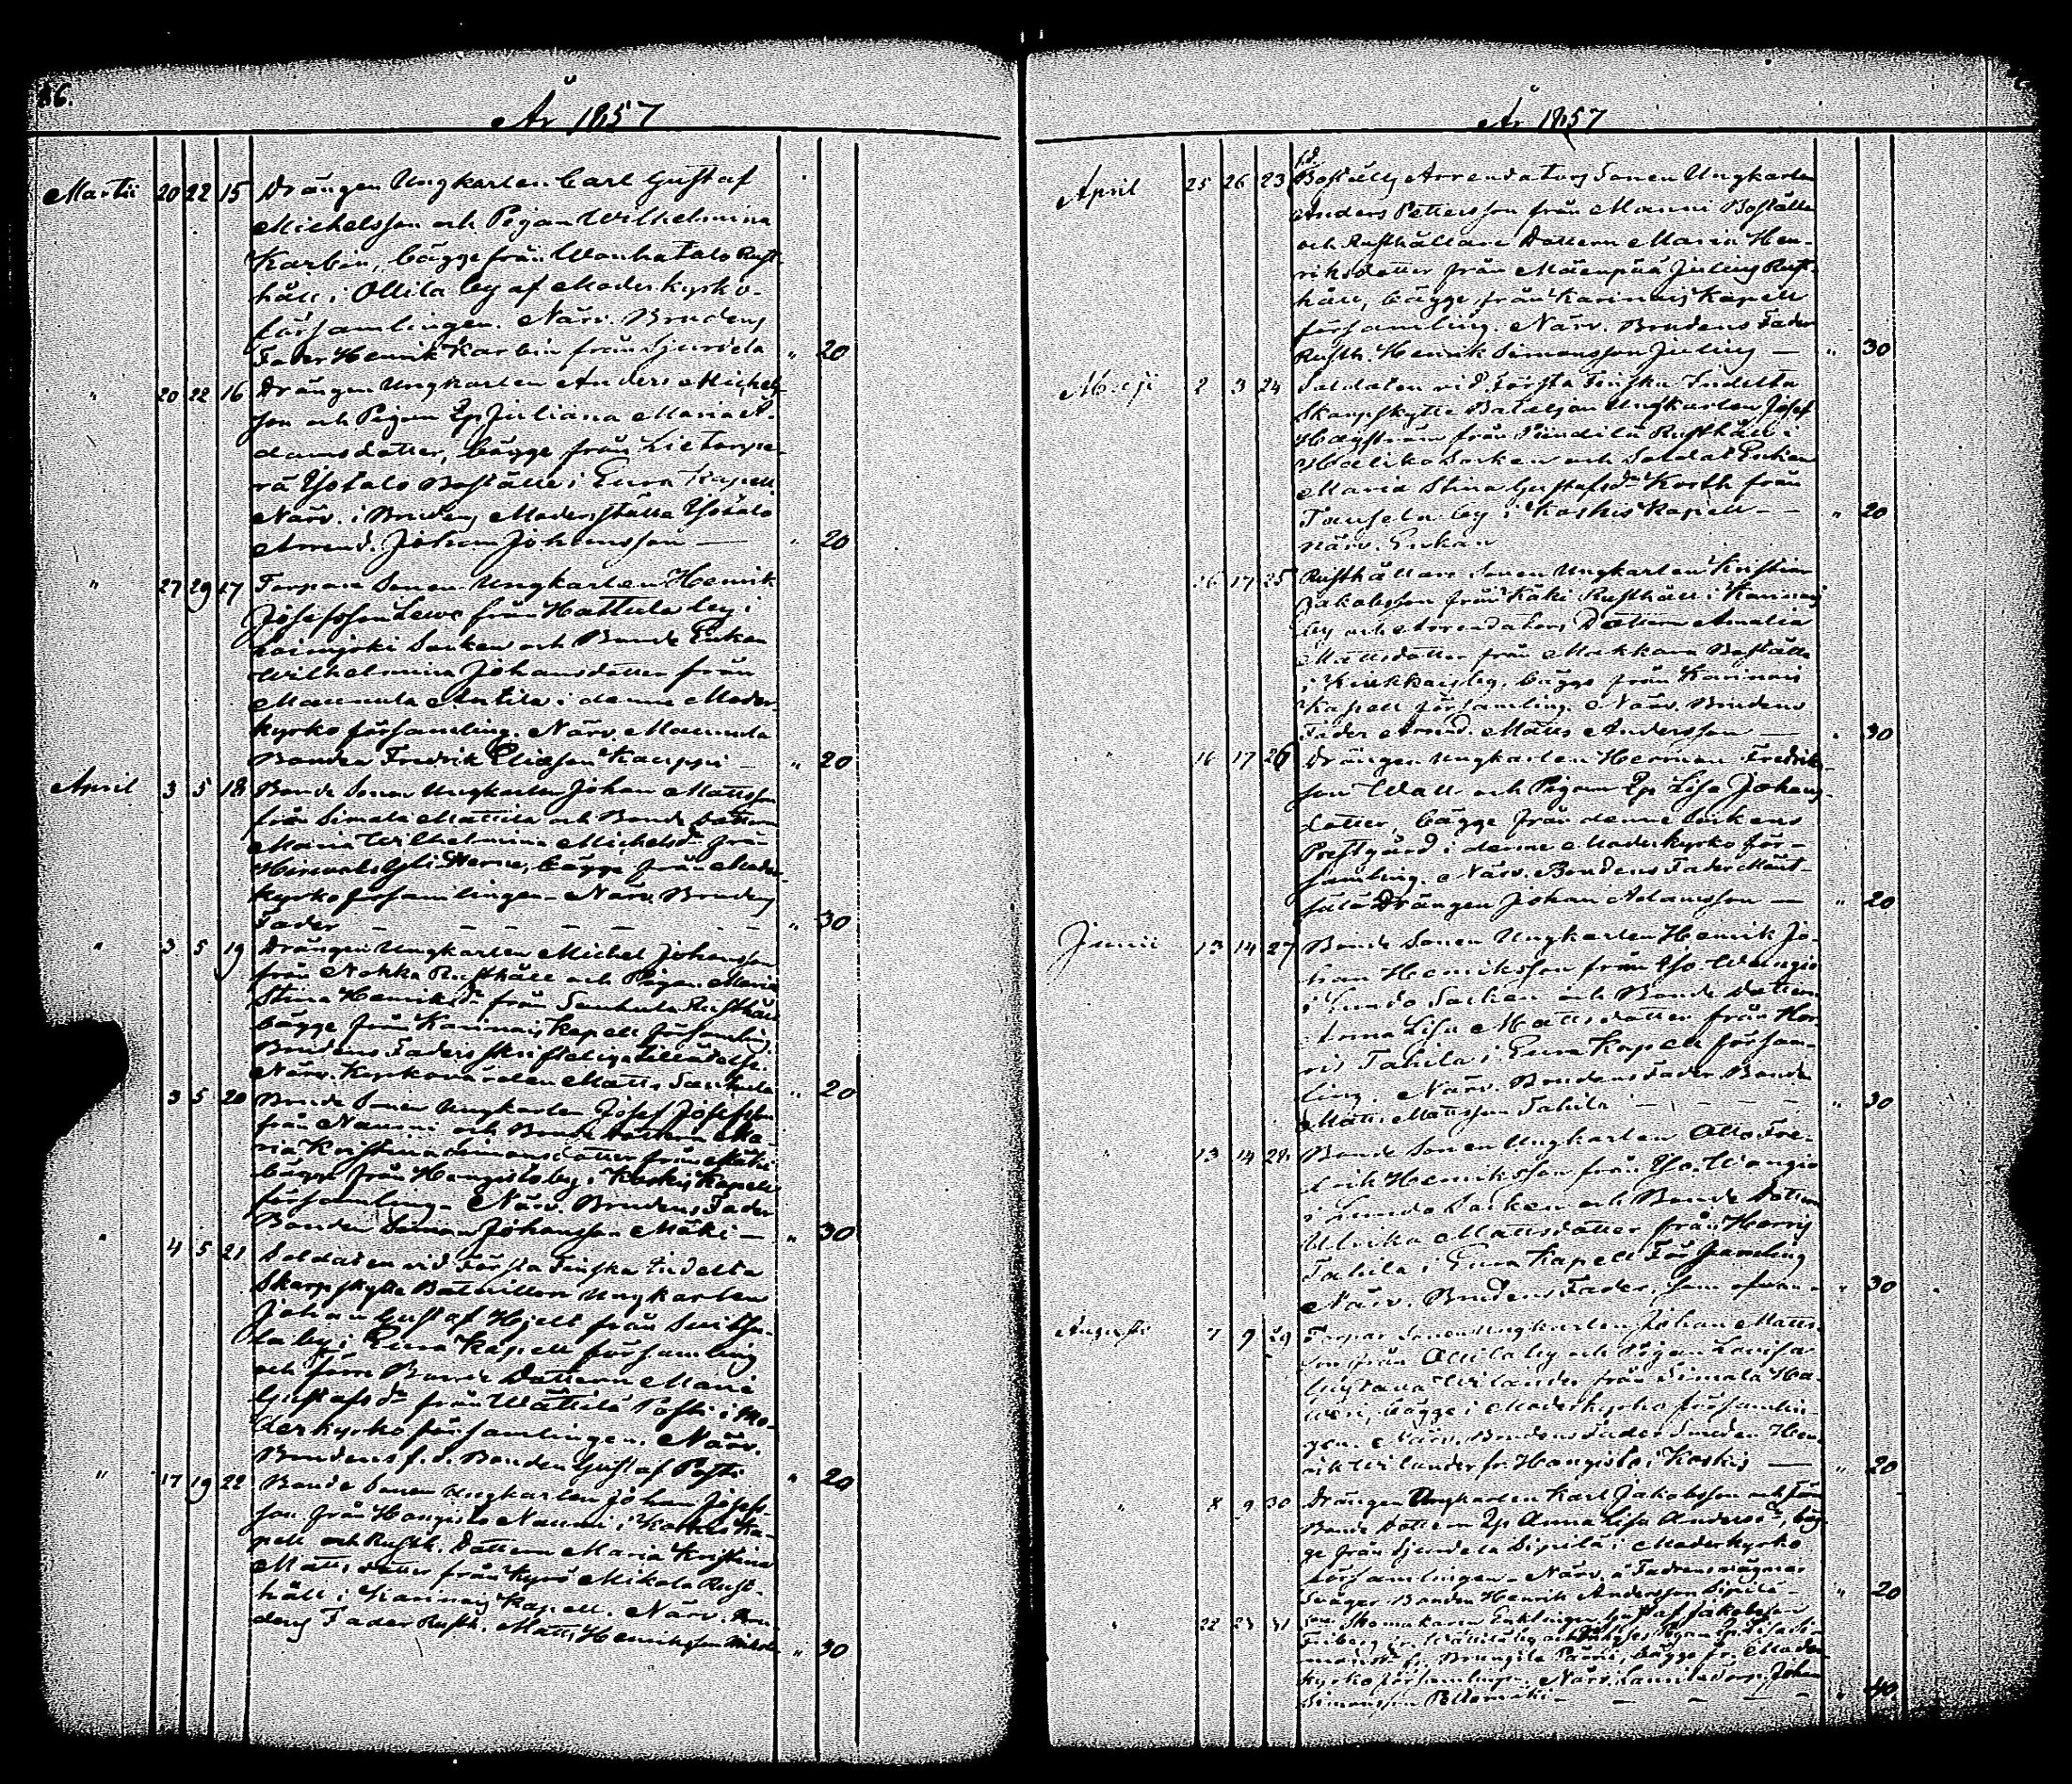 86.
År 1857
Martii 20 22 15 Drängen Ungkarlen Carl Gustaf
Michelsson och Pigan Wilhelmina
Karbin, bägge från Wanhatalo Rust-
håll i Ollila by af Moderkyrko-
församlingen. Närv. Brudens
Fader Henrik Karbin från Sjurila " 20
" 20 22 16 Drängen Ungkarlen Anders Michels-
son och Pigan Ep Juliana Maria A-
damsdotter, bägge från
Isotalo Boställe i Eura Kapell
Närv. i Brudens Moderställe Isotalo
Arrend. Johan Johansson — " 20
" 27 29 17 Torpare Sonen Ungkarlen Henrik
Josefsson Lewo från Hattula by i
Loimijoki Socken och Bonde Enkan
Wilhelmina Johansdotter från
Mannula Anttila i denna Moder-
kyrko församling. Närv. Mannula
Bonden Fredrik Eliasson Kauppi — " 20
April 3 5 18 Bonde Sonen Ungkarlen Johan Mattsson
från Simala Mattila och Bonde Dottern
Maria Wilhelmina Michelsdr frå
Hirvois Yli Nerne, bägge från Moder-
kyrko församlingen. Närv. Brudens
Fader — — — — — " 30
" 3 5 19 Drängen Ungkarlen Michel Johansson
från Nokka Rusthåll och Pigan Maria
Stina Henriksdr från Sauhula Rusthåll
bägge från Karinais Kapell församling
Brudens Faders skrifteliga tillåtelse.
Närv. Kyrkovärden Matts Sauhula " 20
3 5 20 Bonde Sonen Ungkarlen Josef Josefsson
från Naumi och Bonde Dottern Ma-
ria Kristina Simonsdotter från Mäki
bägge från Hongisto by i Koskis Kapell
församling. Närv. Brudens Fader
Bonden Simon Johansson Mäki — " 30
" 4 5 21 Soldaten vid Första Finska Indelta
Skarpskytte Bataillon Ungkarlen
Johan Gustaf Hjelt från
la by i Eura Kapell församling
och förre Bonde Dottern Maria
Gustafsdr från Wättilä Posti i Mo-
derkyrko församlingen. Närv.
Brudens f. d. Bonden Gustaf Posti " 20
" 17 19 22 Bonde Sonen Ungkarlen Johan Josefs-
son från Hongisto Naumi i Koskis Ka-
pell och Rusth. Dottern Maria Kristina
Matts dotter från Kyrö Mikola Rust-
håll i Karinais Kapell. Närv. Bru-
dens Fader Rusth. Matts Henriksson Mikola " 30
År 1857
April 25 26 23 f.d.
Boställs Arrendators Sonen Ungkarlen
Anders Pettersson från Manni Boställe
och Rusthållare Dottern Maria Hen-
riksdotter från Mäenpää Julius Rust-
håll, bägge från Karinais Kapell
församling. Närv. Brudens Fader
Rusth. Henrik Simonsson Julius — " 30
Maji 2 3 24 Soldaten vid Första Finska Indelta
Skarpskytte Bataljon Ungkarlen Josef
Hagström från Rusthåll i
Haliko Socken och Soldat Enkan
Maria Stina Gustafsdr Korth från
by i Koskis Kapell — — " 20
Närv. Enkan
16 17 25 Rusthållare Sonen Ungkarlen Kristian
Jakobsson från Kaki Rusthåll i Karinais
by och Arrendators Dottern Amalia
Mattsdotter från Makkara Boställe
i by, bägge från Karinais
Kapell församling. Närv. Brudens
Fader Arrend. Matts Andersson — " 30
" 16 17 26 Drängen Ungkarlen Herman Fredriks-
son Wall och Pigan Ep Lisa Johans-
dotter, bägge från denne Sockens
Prestgård i denne Moderkyrko för-
samling. Närv. Brudens Fader
Drängen Johan Adamsson — " 20
Junii 13 14 27 Bonde Sonen Ungkarlen Henrik Jo-
han Henriksson från Iso-Wangio
i Lundo Socken och Bonde Dottern
Anna Lisa Mattsdotter från Hor-
ris Tahila i Eura Kapell försam-
ling. Närv. Brudens Fader Bonde
Matts Mattsson Tahila — — — " 30
" 13 14 28 Bonde Sonen Ungkarlen Otto Fre-
drik Henriksson från Iso-Wangio
i Lundo Socken och Bonde Dottern
Ulrika Mattsdotter från Horris
Tahila i Eura Kapell Församling
Närv. Brudens Fader, som ofvan — " 30
Augusti 7 9 29 Torpar Sonen Ungkarlen Johan Matts-
son från Ollila by och Pigan Lovisa
Gustava Wilander från Simala Ha-
veri, bägge i Moderkyrko församlin-
gen. Närv. Brudens Fader Smeden Hen-
rik Wilander fr. Hongisto i Koskis — " 20
" 8 9 30 Drängen Ungkarlen Karl Jakobsson och förr
Bonde Dottern Ep Anna Lisa Andersdr, bäg-
ge från Sjurila Sipilä i Moderkyrko
församlingen. Närv. å Fadrens vägnar
Svåger Bonden Henrik Andersson Sipilä — " 20
" 22 23 31 Skomakaren Enklingen Gustaf Jakobsson
Friberg fr. Wättilä by och Pigan
fr. bägge fr. Moder-
kyrko församlingen. Närv. Johan
Simonsson — — — — " 40